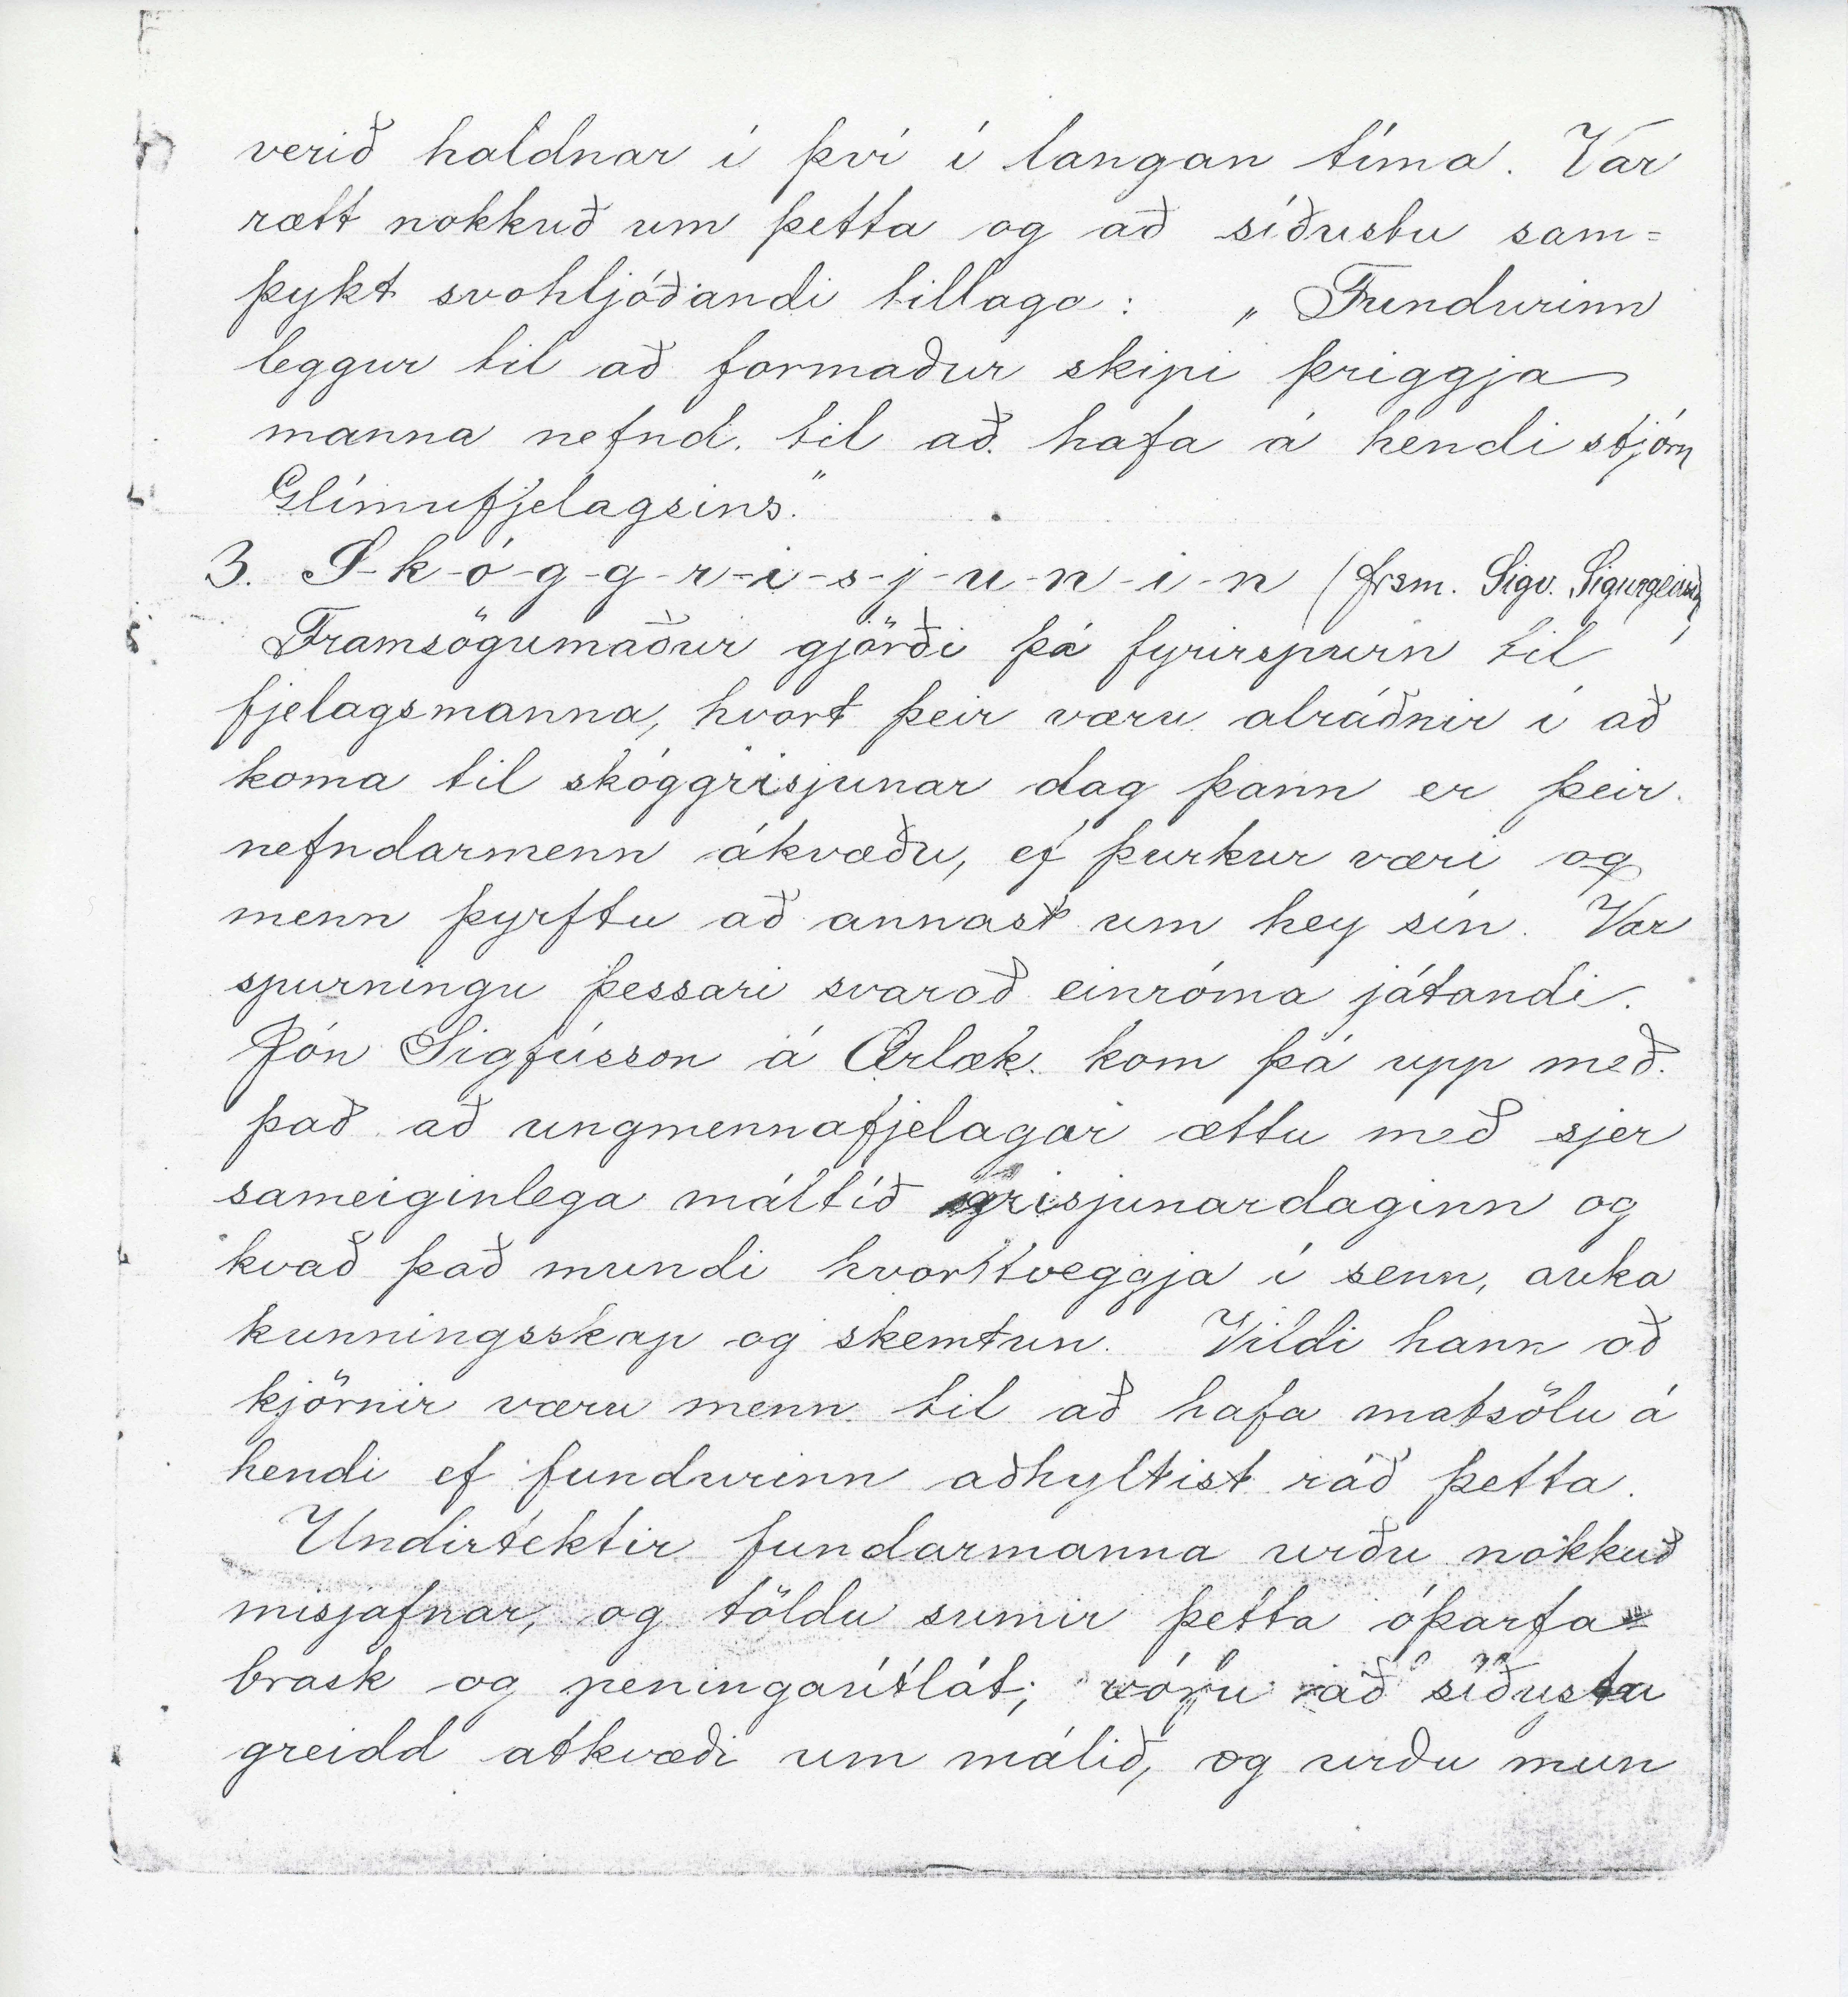 verið haldnar í því í langan tíma. Var
rætt nokkuð um þetta og að síðustu sam=
þykt svohljóðandi tillaga: „Fundurinn
leggur til að formaður skipi þriggja
manna nefnd til að hafa á hendi stjórn
Glímufjelagsins."
3. S-k-ó-g-g-r-i-s-j-u-n-i-n (frsm. Sigv. Sigurgeirss)
Framsögumaður gjörði þá fyrirspurn til
fjelagsmanna, hvort þeir væru alráðnir í að
koma til skóggrisjunar dag þann er þeir
nefndarmenn ákvæðu, ef þurkur væri og
menn þyrftu að annast um hey sín. Var
spurningu þessari svarað einróma játandi.
Jón Sigfússon á Ærlæk kom þá upp með
það að ungmennafjelagar ættu með sjer
sameiginlega máltíð grisjunardaginn og
kvað það mundi hvorttveggja í senn, auka
kunningsskap og skemtun. Vildi hann að
kjörnir væru menn til að hafa matsölu á
hendi ef fundurinn aðhyltist ráð þetta.
Undirtektir fundarmanna urðu nokkuð
misjafnar, og töldu sumir þetta óþarfa=
brask og peningaútlát; vóru að síðustu
greidd atkvæði um málið, og urðu mun